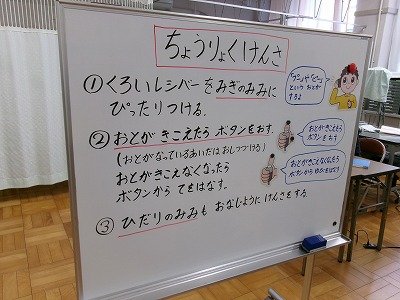 ちょうりょくけんさ
①くろいレシーバーをみぎのみみに
ぴったりつける.
「プー」や「ピー」
という おとが
するよ
②おとが きこえたら ボタンをおす.
(おとがなっているあいだは おしつづける)
おとが きこえなくなったら
ボタンから てをはなす.
おとがきこえたら
ボタンを おす.
おとがきこえなくなったら
ボタンから ゆびをはなす
③ひだりのみみも おなじように けんさをする.